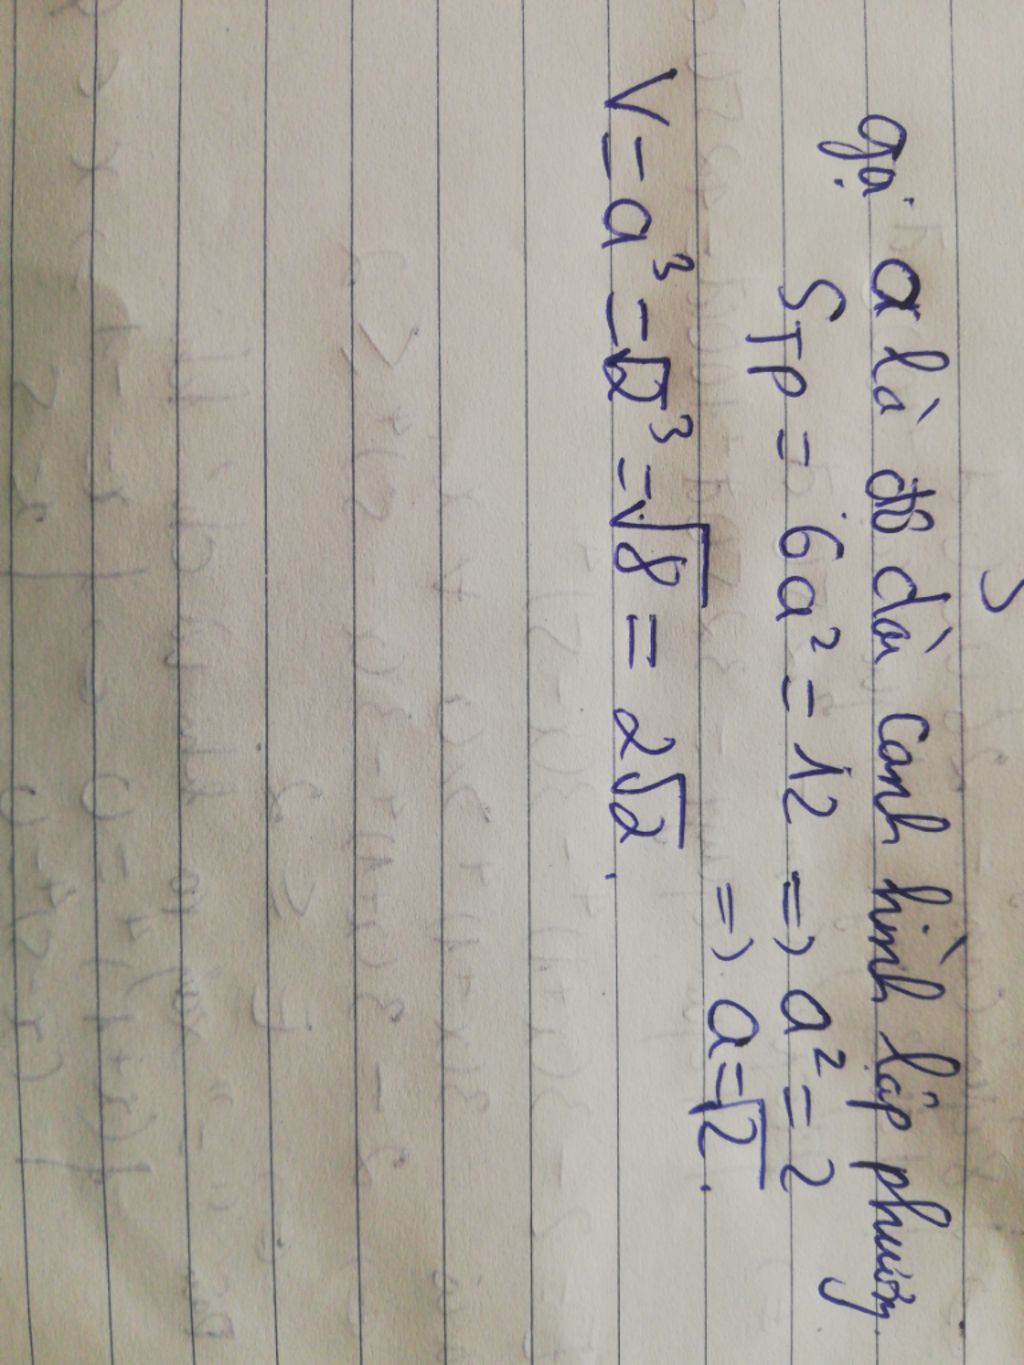 gọi a là độ dài cạnh hình lập phương.
STP = 6a² = 12 => a² = 2
=> a = √2.
V = a³ = √2³ = √8 = 2√2.